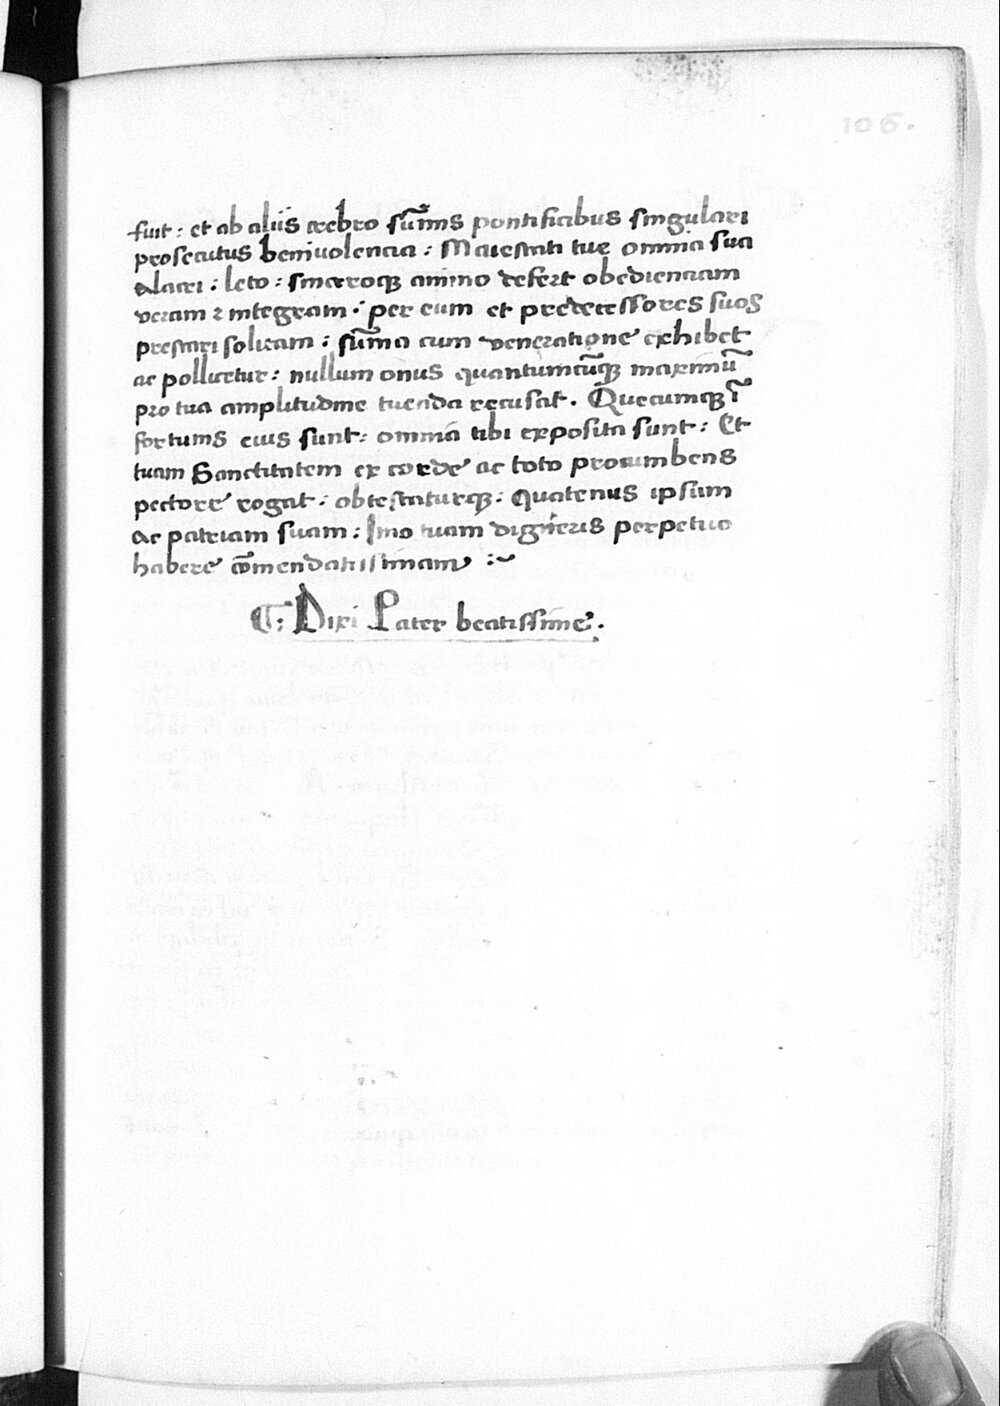 106.
fuit: et ab aliis crebro sum̄is pontificibus singulari
prosecutus benivolencia: Maiestati tuę omnia sua
alacri: leto: sinceroq; animo defert obedienciam
veram ⁊ integram: per eum et predecessores suos
prestari solitam: sum̄a cum veneratione exhibet
ac pollicetur: nullum onus quantumcūq; maximū
pro tua amplitudine tuenda recusat. Quecumq; ī
fortunis eius sunt: omnia tibi exposita sunt: Et
tuam Sanctitatem ex corde ac toto procumbens
pectore rogat: obtestaturq;: Quatenus ipsum
ac patriam suam: Imo tuam digneris perpetuo
habere cōmendatissimam :~
T: Dixi Pater beatissime.